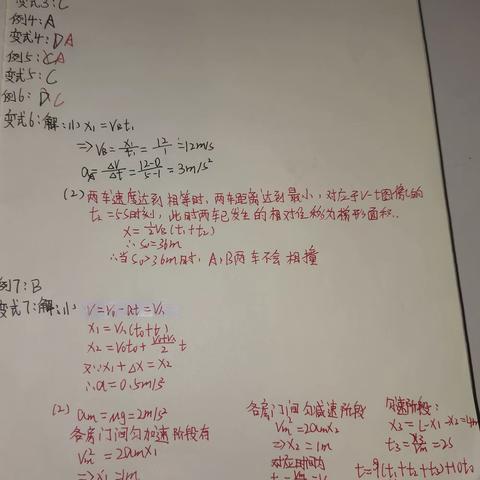 变式3: C
例4: A
变式4: DA
例5: CA
变式5: C
例6: D C
变式6: 解: (1) x₁=VBt₁
⇒VB=x₁/t₁=12/1=12m/s
a=ΔV/Δt=(12-0)/(5-1)=3m/s²
(2) 两车速度达到相等时, 两车距离达到最小, 对应于V-t图像的
t₂=5S时刻, 此时两车已发生的相对位移为梯形面积.
x=½VB(t₁+t₂)
∴S₀=36m
∴当S₀>36m时, A,B两车不会相撞
例7: B
变式7: 解: (1) V=V₀-at=
x₁= (t₀+t)
x₂=V₀t₀+ t
又∵x₁+Δx=x₂
∴a=0.5m/s²
(2) am=μg=2m/s²
各房门间匀加速阶段有
Vm²=2amx₁
⇒x₁=1m
各房门间匀减速阶段
Vm²=2amx₂
⇒x₂=1m
对应时间为
匀速阶段:
x₃=L-x₁-x₂=4m
t₃=x₃/Vm=2s
t=9(t₁+t₂+t₃)+10t₀